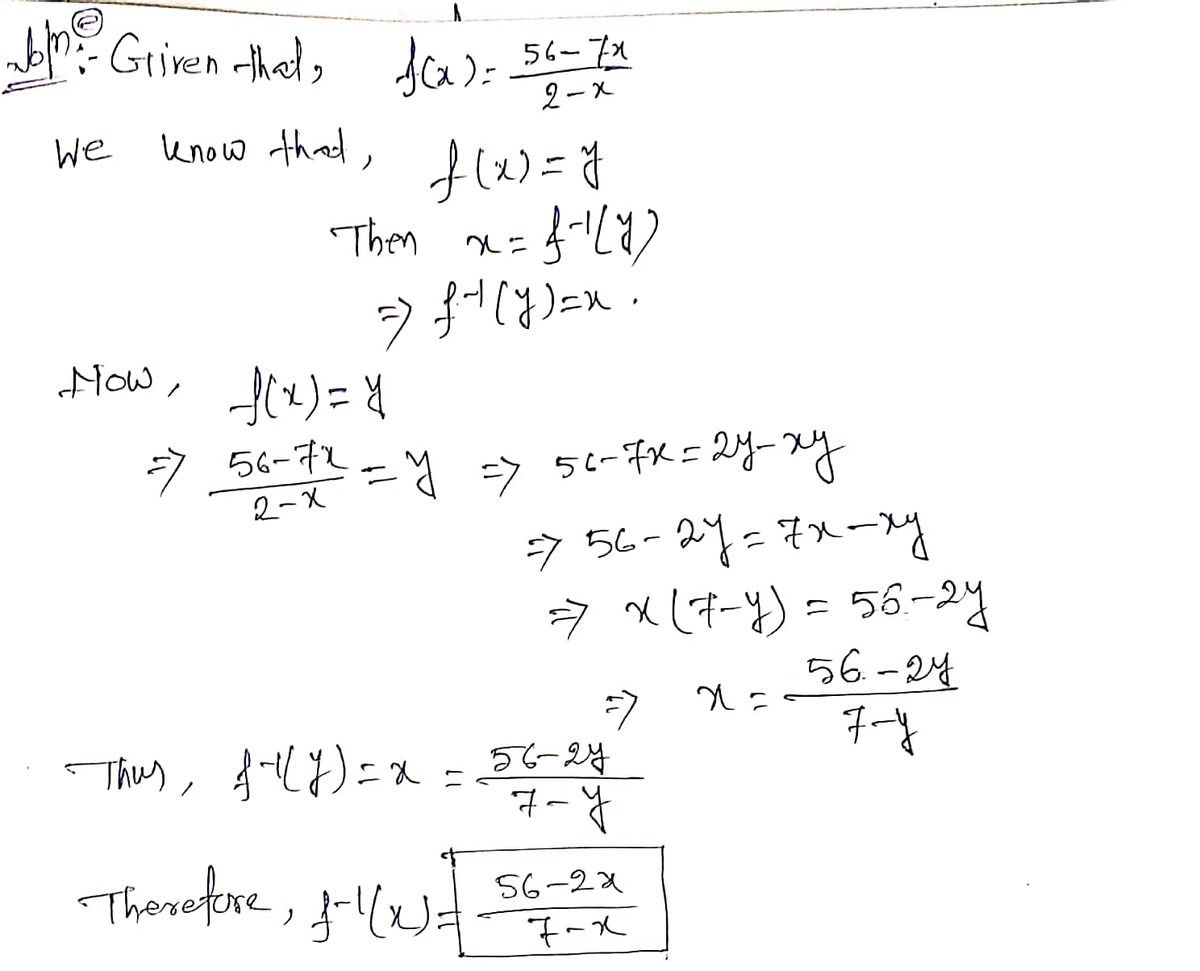 Soln (e) :- Given that, f(x) = (56-7x)/(2-x)
We know that, f(x) = y
Then x = f⁻¹(y)
⇒ f⁻¹(y) = x .
Now, f(x) = y
⇒ (56-7x)/(2-x) = y ⇒ 56-7x = 2y-xy
⇒ 56-2y = 7x-xy
⇒ x(7-y) = 56-2y
⇒ x = (56-2y)/(7-y)
Thus, f⁻¹(y) = x = (56-2y)/(7-y)
Therefore, f⁻¹(x) = (56-2x)/(7-x)